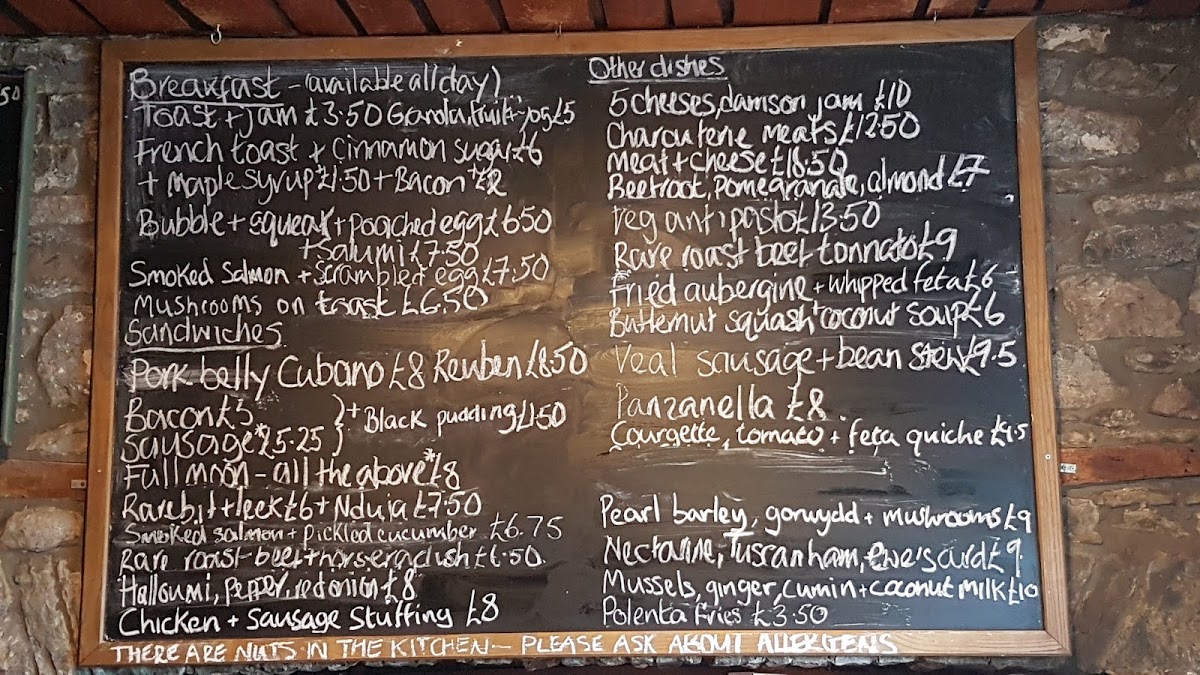 Breakfast - (available all day)
Toast + jam £3.50 Granola, fruit + yog £5
French toast + cinnamon sugar £6
+ maple syrup £1.50 + Bacon £2
Bubble + squeak + poached egg £6.50
+ salumi £7.50
Smoked salmon + scrambled egg £7.50
Mushrooms on toast £6.50
Sandwiches
Pork belly Cubano £8 Reuben £8.50
Bacon £5 } + Black pudding £1.50
Sausage* £5.25
Full moon - all the above* £8
Rarebit + leek £6 + Nduja £7.50
Smoked salmon + pickled cucumber £6.75
Rare roast beef + horseradish £6.50
Halloumi, pepper, red onion £8
Chicken + sausage stuffing £8
Other dishes
5 cheeses, damson jam £10
Charcuterie meats £12.50
meat + cheese £18.50
Beetroot, pomegranate, almond £7
veg antipasto £13.50
Rare roast beef tonnato £9
Fried aubergine + whipped feta £6
Butternut squash + coconut soup £6
Veal sausage + bean stew £9.5
Panzanella £8
Courgette, tomato + feta quiche
Pearl barley, gorwydd + mushrooms £9
Nectarine, Tuscan ham, Ewe's curd £9
Mussels, ginger, cumin + coconut milk £10
Polenta fries £3.50
THERE ARE NUTS IN THE KITCHEN - PLEASE ASK ABOUT ALLERGENS
50